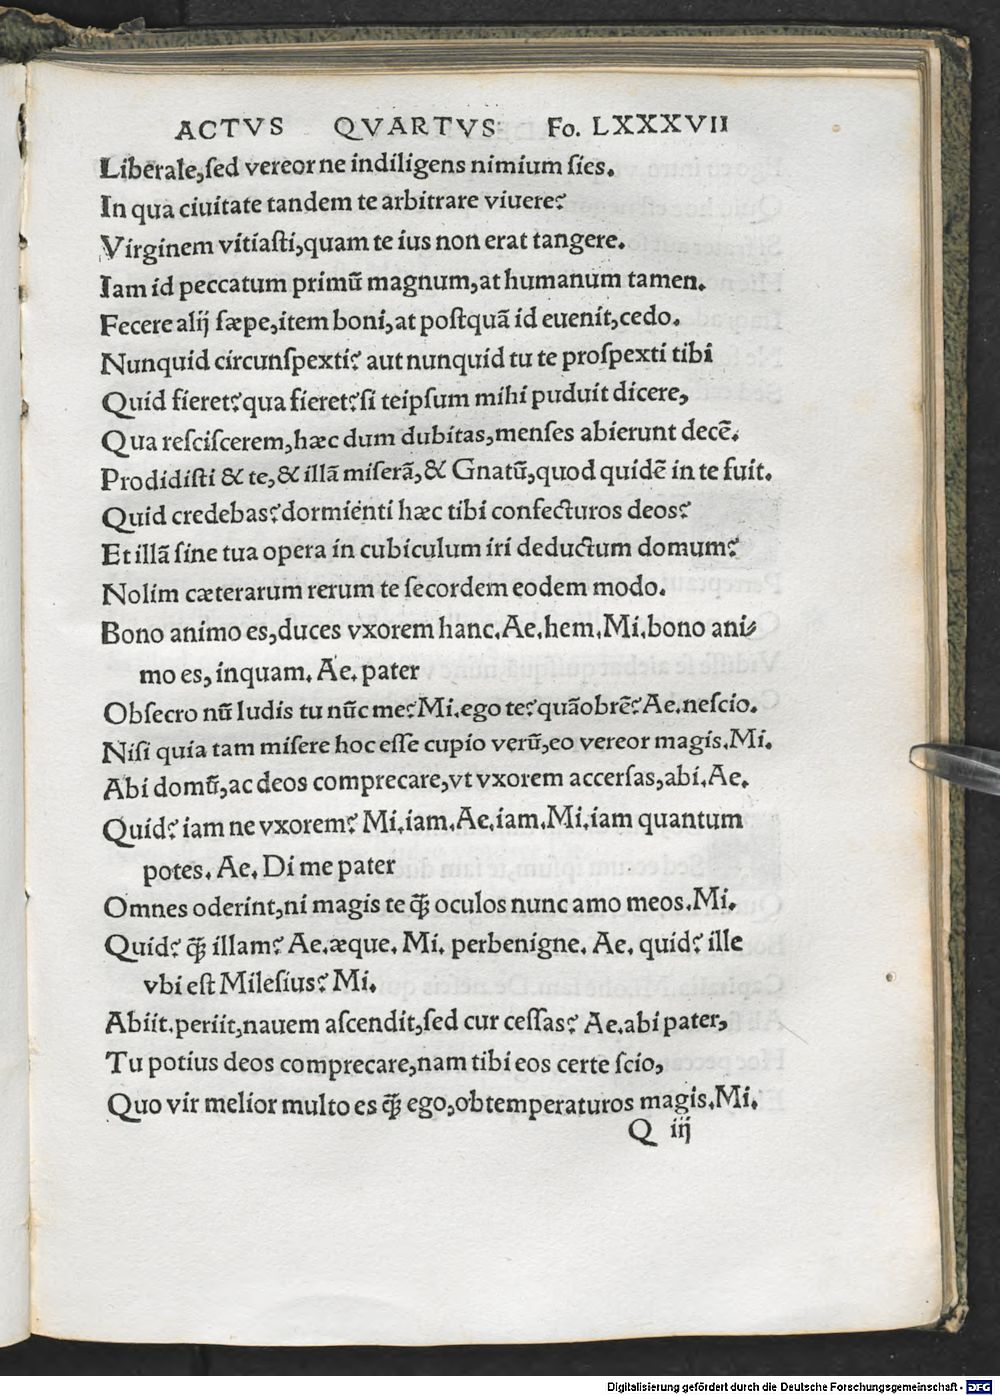 ACTVS QVARTVS Fo. LXXXVII
Liberale,ſed vereor ne indiligens nimium ſies.
In qua ciuitate tandem te arbitrare viuere?
Virginem vitiaſti,quam te ius non erat tangere.
Iam id peccatum primū magnum,at humanum tamen.
Fecere alij ſæpe,item boni,at poſtquā id euenit,cedo.
Nunquid circunſpexti? aut nunquid tu te proſpexti tibi
Quid fieret?qua fieret?ſi teipſum mihi puduit dicere,
Qua reſciſcerem,hæc dum dubitas,menſes abierunt decē.
Prodidiſti & te,& illā miſerā,& Gnatū,quod quidē in te fuit.
Quid credebas?dormienti hæc tibi confecturos deos?
Et illā ſine tua opera in cubiculum iri deductum domum?
Nolim cæterarum rerum te ſecordem eodem modo.
Bono animo es,duces vxorem hanc.Ae.hem.Mi.bono ani⸗
mo es, inquam. Ae. pater
Obſecro nū ludis tu nūc me?Mi.ego te?quāobrē?Ae.neſcio.
Niſi quia tam miſere hoc eſſe cupio verū,eo vereor magis.Mi.
Abi domū,ac deos comprecare,vt vxorem accerſas,abi.Ae.
Quid?iam ne vxorem? Mi.iam.Ae.iam.Mi.iam quantum
potes. Ae. Di me pater
Omnes oderint,ni magis te q̄ꝫ oculos nunc amo meos.Mi.
Quid? q̄ꝫ illam? Ae.æque. Mi. perbenigne. Ae. quid? ille
vbi eſt Mileſius? Mi.
Abiit.periit,nauem aſcendit,ſed cur ceſſas? Ae.abi pater,
Tu potius deos comprecare,nam tibi eos certe ſcio,
Quo vir melior multo es q̄ꝫ ego,obtemperaturos magis.Mi.
Q iij
Digitalisierung gefördert durch die Deutsche Forschungsgemeinschaft - DFG